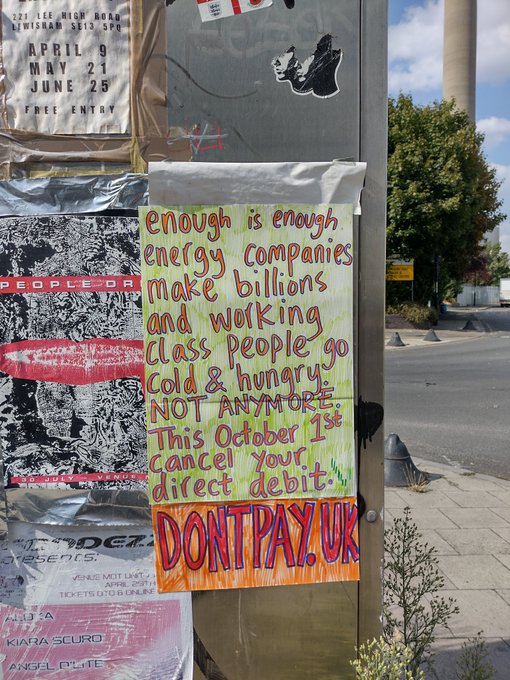 221 LEE HIGH ROAD
LEWISHAM SE13 5PQ
APRIL 9
MAY 21
JUNE 25
FREE ENTRY
enough is enough
energy companies
make billions
and working
class people go
cold & hungry.
NOT ANYMORE.
This October 1st
cancel your
direct debit.
DONTPAY.UK
PEOPLE DR
30 JULY - VENUE
VENUE MOT UNIT
APRIL 29TH
TICKETS OTD & ONLINE
KIARA SCURO
ANGEL D'LITE